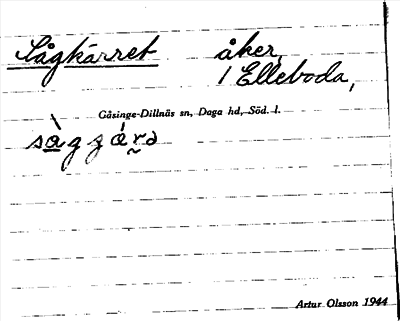 Sågkärret åker,
1 Elleboda,
Gåsinge-Dillnäs sn, Daga hd, Söd. l.
Artur Olsson 1944